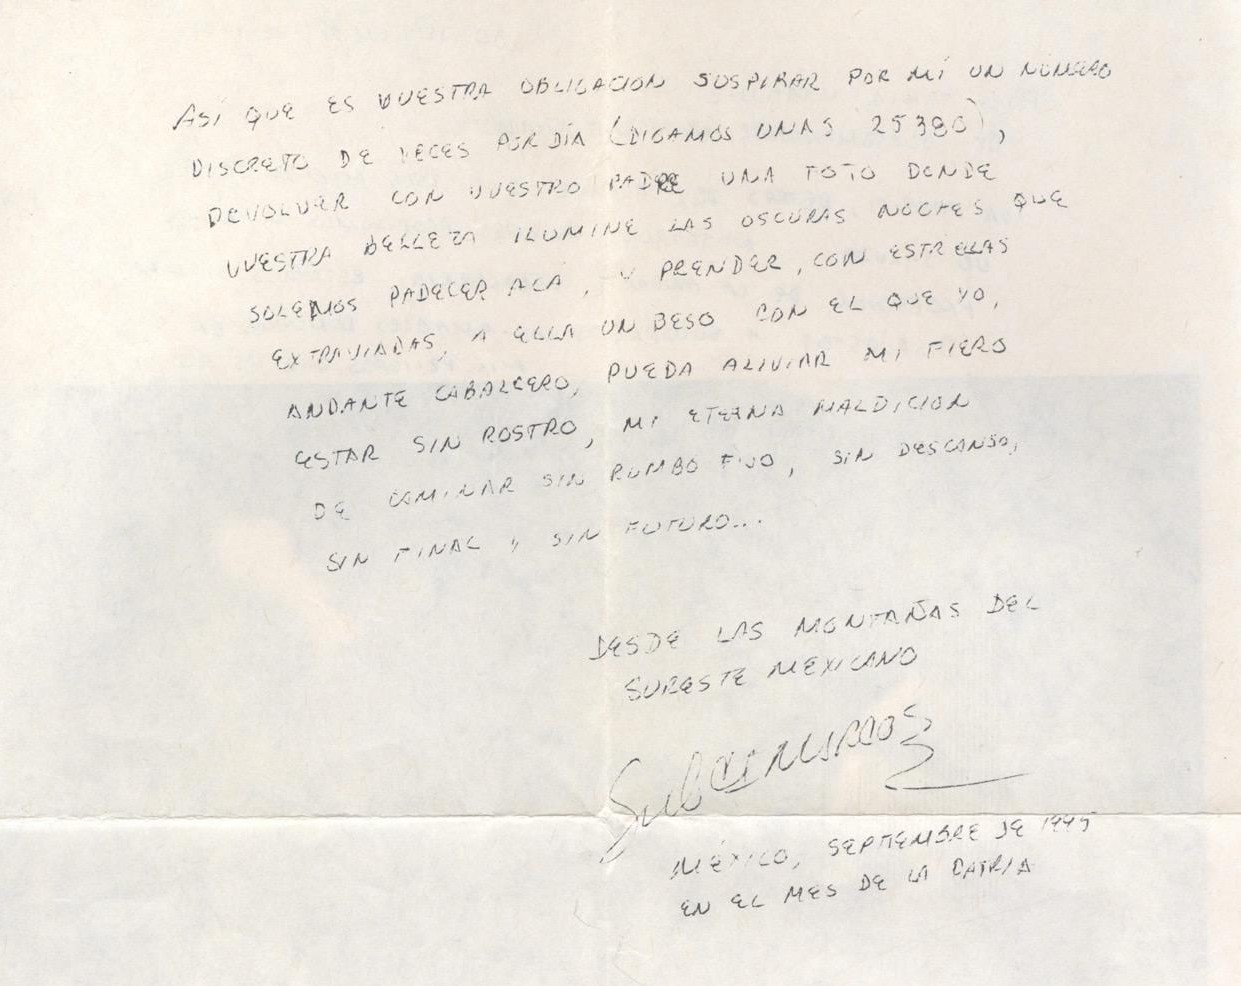 ASÍ QUE ES VUESTRA OBLIGACION SUSPIRAR POR MÍ UN NÚMERO
DISCRETO DE VECES POR DÍA (DIGAMOS UNAS 25380),
DEVOLVER CON VUESTRO PADRE UNA FOTO DONDE
VUESTRA BELLEZA ILUMINE LAS OSCURAS NOCHES QUE
SOLEMOS PADECER ACA, Y PRENDER, CON ESTRELLAS
EXTRAVIADAS, A ELLA UN BESO CON EL QUE YO,
ANDANTE CABALLERO, PUEDA ALIVIAR MI FIERO
ESTAR SIN ROSTRO, MI ETERNA MALDICION
DE CAMINAR SIN RUMBO FIJO, SIN DESCANSO,
SIN FINAL Y SIN FUTURO...
DESDE LAS MONTAÑAS DEL
SURESTE MEXICANO
MÉXICO, SEPTIEMBRE DE 1995
EN EL MES DE LA PATRIA